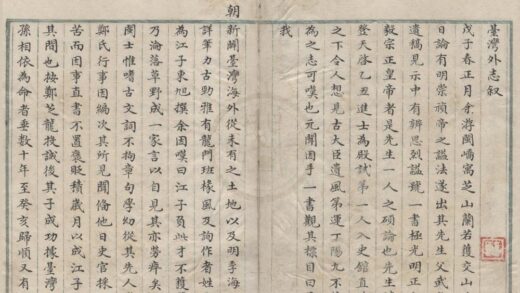 臺灣外志叙
戊子春正月余將閩嶠寓芝山蘭若獲交山
日論有明崇禎帝之謚法遂出其先生父武
遺稿見示中有辨思烈謚號一書極光明正
毅宗正皇帝者是先生一人之碩論也先生
登天啓乙丑進士為殿試第一人入史館直
之下令人想見古大臣遺風第運丁陽九不
為之志可嘆也元閒因手一書觀其標目曰
我
朝
新闢臺灣海外從未有之土地以及明季海
詳筆力古勁雅有龍門班椽風及詢作者姓
為江子東旭撰余因嘆曰江子負此才不獲
乃淪落草野成一家言以自見其亦勞瘁矣
閩士惟嗜古文詞不拘章句學幼從其先人
鄭氏行事因編次其所見聞偹他日史官採
苦而因事直書不置褒貶積歲月以成江子
其間也按鄭芝龍投誠後其子成功據臺灣
孫相依為命者垂數十年至癸亥歸順又有